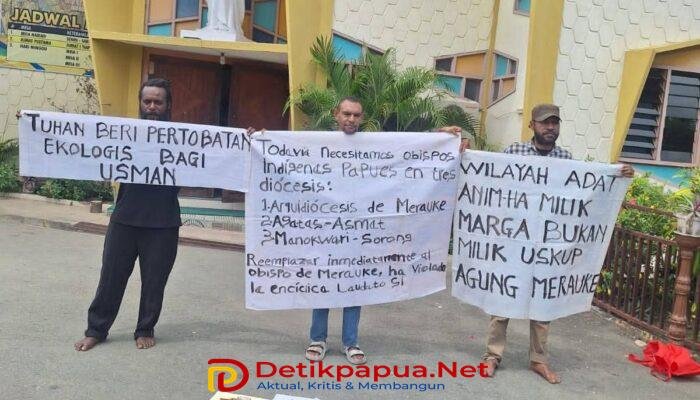 JADWAL
TUHAN BERI PERTOBATAN
EKOLOGIS BAGI
USMAN
Todavia necesitamos obispos
Indigenas Papues en tres
diócesis:
1. Arquidiócesis de Merauke
2. Agatas-Asmat
3. Manokwari-Sorong
Reemplazar inmediatamente al
obispo de Merauke, ha violado
la encíclica Laudato Si
WILAYAH ADAT
ANIM-HA MILIK
MARGA BUKAN
MILIK USKUP
AGUNG MERAUKE
Detikpapua.Net
Aktual, Kritis & Membangun